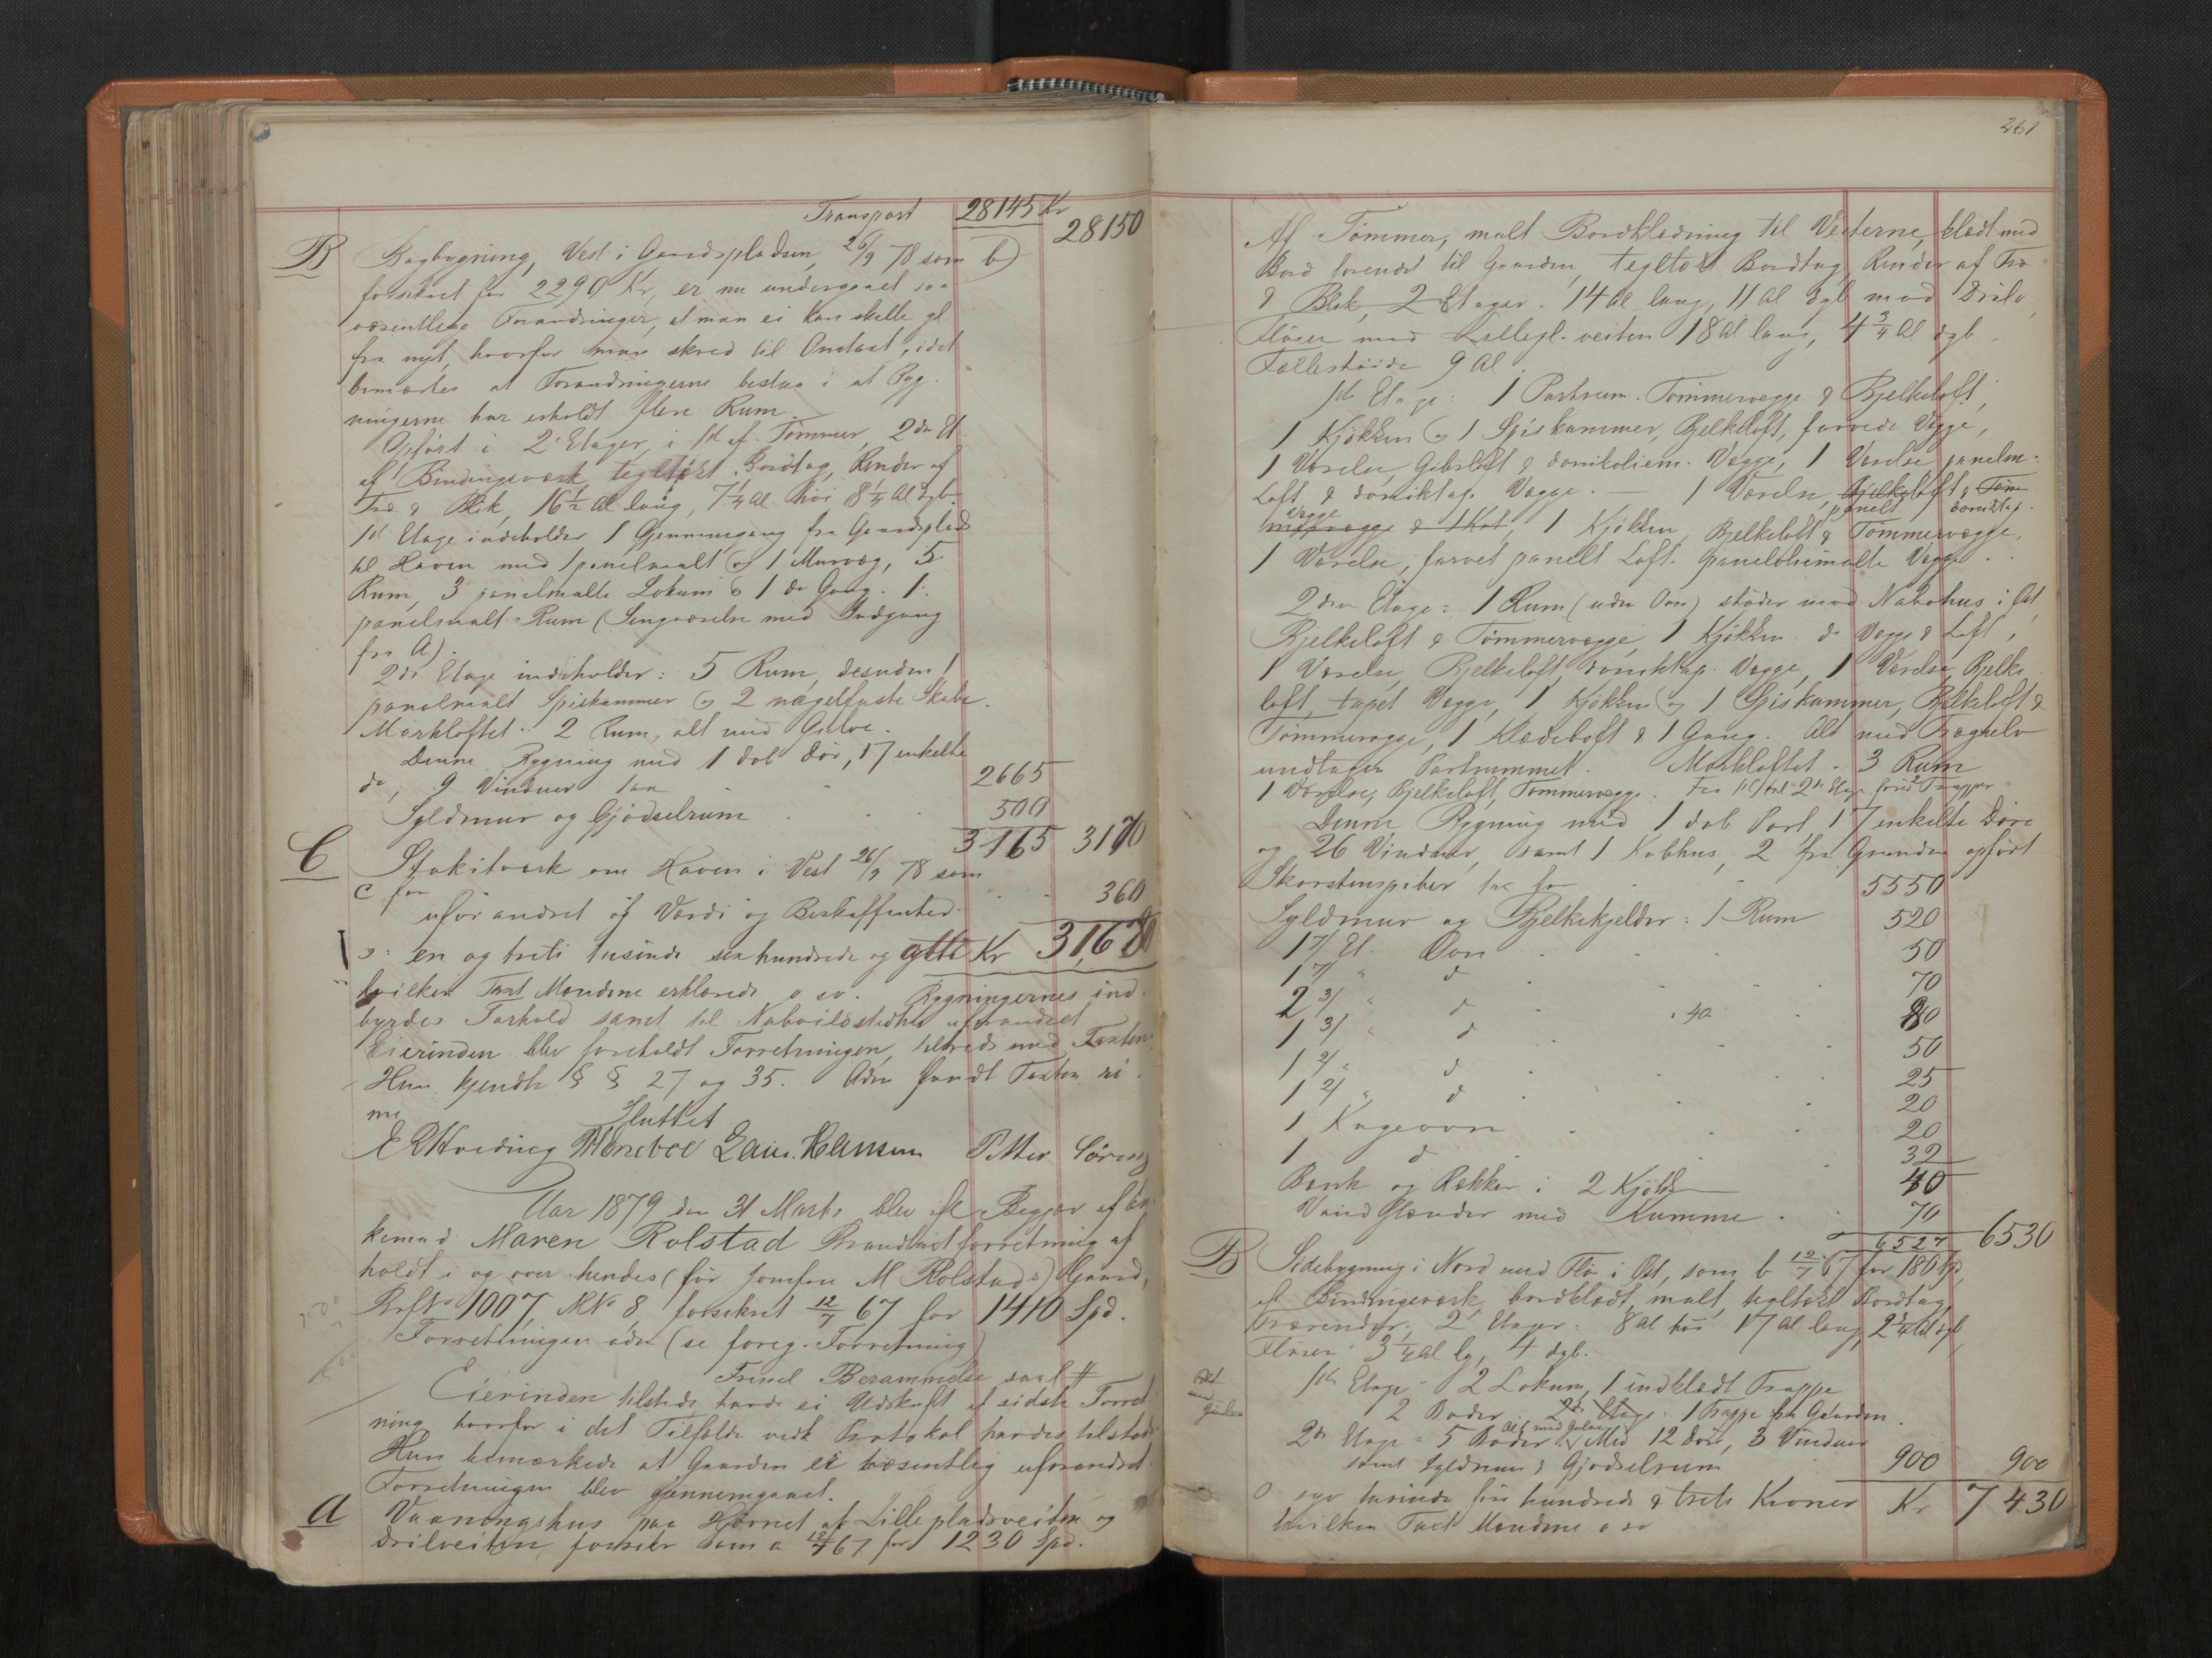 Transport 28145 Kr
28150
B Bagbygning, Vest i Gaardspladsen, 26/9 78 som b)
forsikret for 2290 Kr, er nu undergaaet saa
væsentlige Forandringer, at man ei kan skille gl
fra nyt, hvorfor man skred til Omtaxt, idet
bemærkes at Forandringerne bestaa i at Byg-
ningerne har erholdt flere Rum.
Opført i 2 Etager, i 1st af Tømmer, 2den Et
af Bindingsværk, teglteket Bordtag, Render af
Træ & Blik, 16 1/2 Al lang, 7 1/4 Al høi 8 1/4 Al dyb
1st Etage indeholder 1 Gjennemgang fra Gaardsplads
til Haven med 1 panelmalt og 1 Murvæg, 5
Rum, 3 panelmalte Lokum & 1 do Gang. 1
panelmalt Rum (Sengværelse med Indgang
fra A).
2de Etage indeholder: 5 Rum, desuden 1
panelmalt Spiskammer og 2 nagelfaste Skabe.
Mørkloftet: 2 Rum, alt med Gulve.
Denne Bygning med 1 dob Dør, 17 enkelte
do, 9 Vinduer 2665
Syldmur og Gjødselrum 500
3165 3170
C Stakitværk om Haven i Vest 26/9 78 som
c for 360
uforandret af Værdi og Beskaffenhed
o: en og treti tusinde sex hundrede og otti Kr 31,680
hvilken Taxt Mændene erklærede o sv. Bygningernes ind-
byrdes Forhold samt til Naboildstedher uforandret
Eierinden blev foreholdt Forretningen, tilfreds med Taxten
Hun kjendte § § 27 og 35. Adm fandt Taxten ri-
me
Sluttet
Lau. Hansen Petter Søreng
Aar 1879 den 31 Marts blev efter Begjær af En-
kemad. Maren Rolstad Brandtaxtforretning af-
holdt i og over hendes (før Jomfru M Rolstads) Gaard,
BrfNo 1007, MNo 8, forsikret 12/7 67 for 1410 Spd.
Forretningen adm (se foreg. Forretning)
Fremel Berammelse saal #
Eierinden tilstede, havde ei Udskrift af sidste Forret-
ning, hvorfor i det Tilfælde vedk Protokol havdes tilstede
Hun bemærkede at Gaarden ei væsentlig uforandret
Forretningen blev gjennemgaaet.
A Vaaningshus paa Hjørnet af Lillepladsveiten og
Drilveiten, forsikr som a 12/7 67 for 1230 Spd.
261
Af Tømmer, malt Bordklædning til Veiterne, klædt med
Bord forenet til Gaarden, teglteket Bordtag, Render af Træ
& Blik, 2 Etager. 14 Al lang, 11 Al dyb mod Drilv,
Fløien mod Lillepl.veiten 18 Al lang, 4 3/4 Al dyb
Fælleshøide 9 Al.
1ste Etage: 1 Portrum. Tømmervægge & Bjelkeloft,
1 Kjøkken og 1 Spiskammer, Bjelkeloft, farvede Vægge,
1 Værelse, Gibsloft & Vægge, 1 Værelse panelm.
Loft, & Vægge. — 1 Værelse, Bjelkeloft & Tøm
panelt
Vægge
mervægge & 1 Kot, 1 Kjøkken, Bjelkeloft & Tømmervægge,
1 Værelse, farvet panelt Loft. Vægge.
2den Etage: 1 Rum (uden Ovn) støder mod Nabohus i Øst
Bjelkeloft & Tømmervægge, 1 Kjøkken do Vægge & Loft,
1 Værelse, Bjelkeloft, Vægge, 1 Værelse, Bjelke
loft, tapet Vægge, 1 Kjøkken og 1 Spiskammer, Bjelkeloft &
Tømmervægge, 1 Klædeloft & 1 Gang. Alt med Trægulv
undtagen Portrummet. Mørkloftet - 3 Rum
1 Værelse, Bjelkeloft, Tømmervægge. Fra 1st til 2den Etage fører 2 Trapper
Denne Bygning med 1 dob Port, 17 enkelte Døre
og 26 Vinduer, samt 1 Kobhus, 2 fra Grunden opført
Skorstenspiber 5550
Syldmur og Bjelkekjelder: 1 Rum 520
1 Et. Ovn 50
1 " d 70
2 3/ " d 40 80
1 3/ " d 50
1 2/ " d 25
1 2/ " d 20
1 Kageovn 20
1 d 32
Bænk og Rækker i 2 Kjøkk 40
Vand med Kumme 70
6527 6530
B Sidebygning i Nord med Fløi i Øst, som b 12/7 67 for 180 Spd,
af Bindingsværk, bordklædt, malt, teglteket Bordtag,
Trærender, 2 Etager: 8 Al høi 17 Al lang, 2 3/4 Al dyb,
Fløien 3 1/4 Al lg, 4 dyb.
1ste Etage - 2 Lokum, 1 indklædt Trappe
2 Boder 2de Etage 1 Trappe fra Gaarden.
Alt med Gulve
2de Etage - 5 Boder. Med 12 Døre, 3 Vinduer
samt Syldmur & Gjødselrum 900 900
o syv tusinde fire hundrede & treti Kroner Kr 7430
hvilken Taxt Mændene o sv